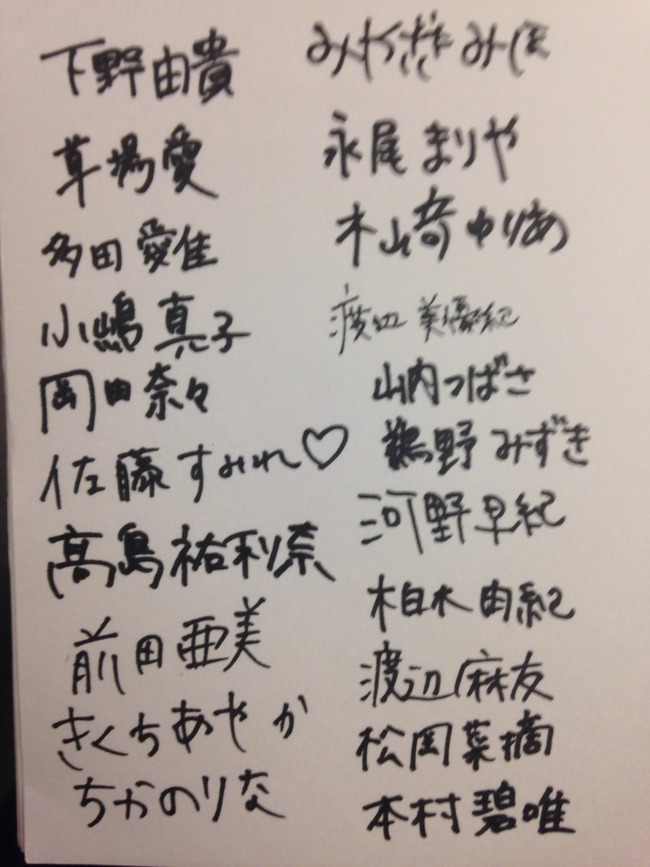 下野由貴
草場愛
多田愛佳
小嶋真子
岡田奈々
佐藤すみれ♡
高島祐利奈
前田亜美
きくちあやか
ちかのりな
みやざきみほ
永尾まりや
木山奇ゆりあ
渡辺美優紀
山内つばさ
鵜野みずき
河野早紀
柏木由紀
渡辺麻友
松岡菜摘
本村碧唯